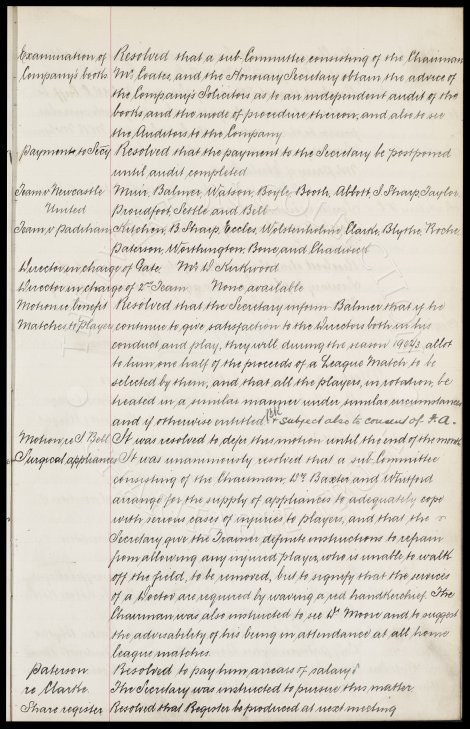 Examination of Resolved that a sub-Committee consisting of the Chairman
Company's books Mr. Coates, and the Honorary Secretary obtain the advice of
the Company's Solicitors as to an independent audit of the
books, and the mode of procedure thereon, and also to see
the Auditors to the Company.
Payment to Secy Resolved that the payment to the Secretary be postponed
until audit completed
Team v Newcastle Muir, Balmer, Watson, Boyle, Booth, Abbott, J Sharp, Taylor,
United Proudfoot, Settle and Bell
Team v Padiham Kitchen, B Sharp, Eccles, Wolstenholme, Clarke, Blythe, Roche
Paterson, Worthington, Bone, and Chadwick
Director in charge of Gate. Mr D. Kirkwood
Director in charge of 2nd Team. None available
Motion re benefit Resolved that the Secretary inform Balmer that if he
Matches to Players continue to give satisfaction to the Directors both in his
conduct and play, they will, during the season 1904/5 allot
to him one half of the proceeds of a League Match to be
selected by them, and that all the players, in rotation, be
treated in a similar manner under similar circumstances
and if otherwise entitled & subject also to consent of F.A.
Motion re J Bell It was resolved to defer this motion until the end of the month
Surgical appliances It was unanimously resolved that a sub Committee
consisting of the Chairman, Dr. Baxter and Whitford
arrange for the supply of appliances to adequately cope
with serious cases of injuries to players, and that the
Secretary give the Trainer definite instructions to refrain
from allowing any injured player, who is unable to walk
off the field, to be removed, but to signify that the services
of a Doctor are required by waving a red handkerchief. The
Chairman was also instructed to see Dr Moore and to suggest
the advisability of his being in attendance at all home
league matches.
Paterson Resolved to pay him arrears of salary
re Clarke The Secretary was instructed to pursue this matter
Share register Resolved that Register be produced at next meeting